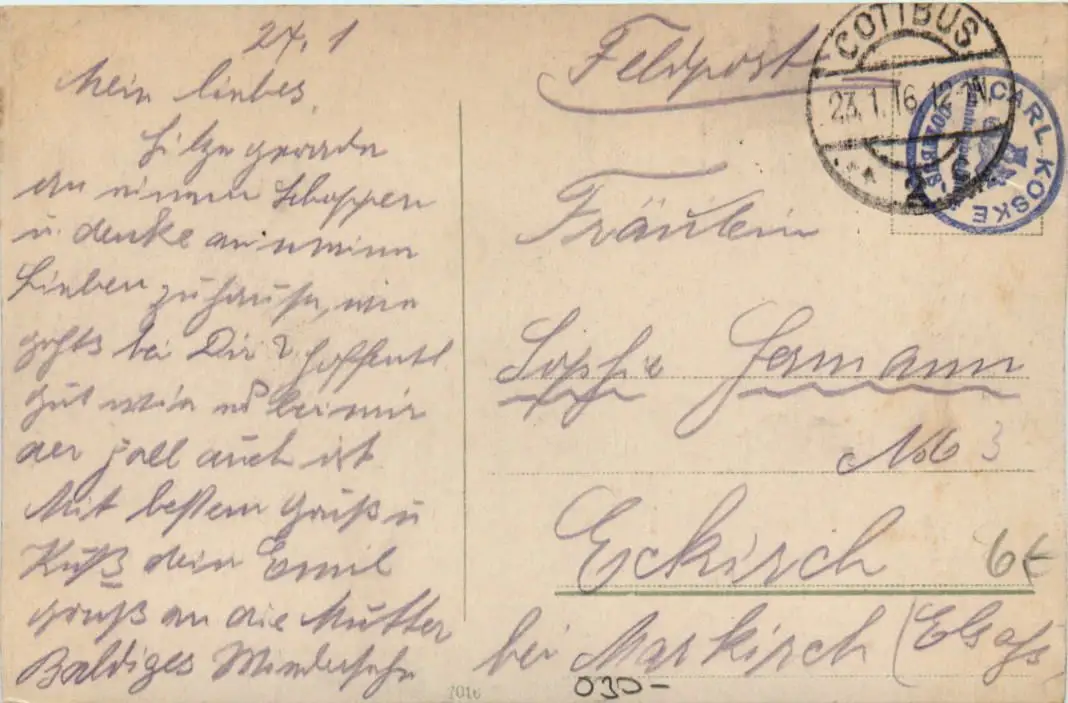 24.1
Mein liebes,
Sitze gerade
an einem Schoppen
u. denke an meine
Lieben zuhause, wie
gehts bei Dir? hoffentl
gut wie es bei mir
der fall auch ist
Mit bestem Gruß u
Kuß dein Emil
gruß an die Mutter
Baldiges Wiedersehn
Feldpost
COTTBUS
23.1.16.12-1N.
* * 2
CARL KOSKE
COTTBUS
Fräulein
Sophie Germann
No 3
Eckirch
bei Markirch (Elsaß
6€
030-
1016